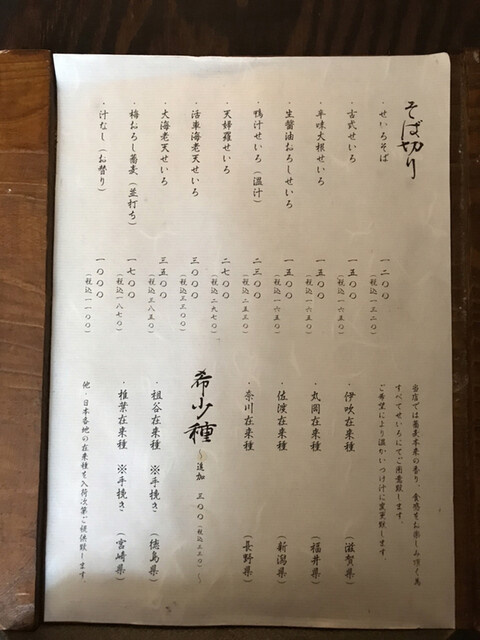 そば切り
・せいろそば 一二〇〇 (税込一三二〇)
・古式せいろ 一五〇〇 (税込一六五〇)
・辛味大根せいろ 一五〇〇 (税込一六五〇)
・生醤油おろしせいろ 一五〇〇 (税込一六五〇)
・鴨汁せいろ(温汁) 二三〇〇 (税込二五三〇)
・天婦羅せいろ 二七〇〇 (税込二九七〇)
・活車海老天せいろ 三〇〇〇 (税込三三〇〇)
・大海老天せいろ 三五〇〇 (税込三八五〇)
・梅おろし蕎麦(並打ち) 一七〇〇 (税込一八七〇)
・汁なし(お替り) 一〇〇〇 (税込一一〇〇)
当店では蕎麦本来の香り、食感をお楽しみ頂く為
すべてせいろにてご用意致します。
ご希望により温かいつけ汁に変更致します。
・伊吹在来種 (滋賀県)
・丸岡在来種 (福井県)
・佐渡在来種 (新潟県)
・奈川在来種 (長野県)
希少種 〜追加 三〇〇(税込三三〇)〜
・祖谷在来種 ※手挽き (徳島県)
・椎葉在来種 ※手挽き (宮崎県)
他・日本各地の在来種を入荷次第ご提供致します。